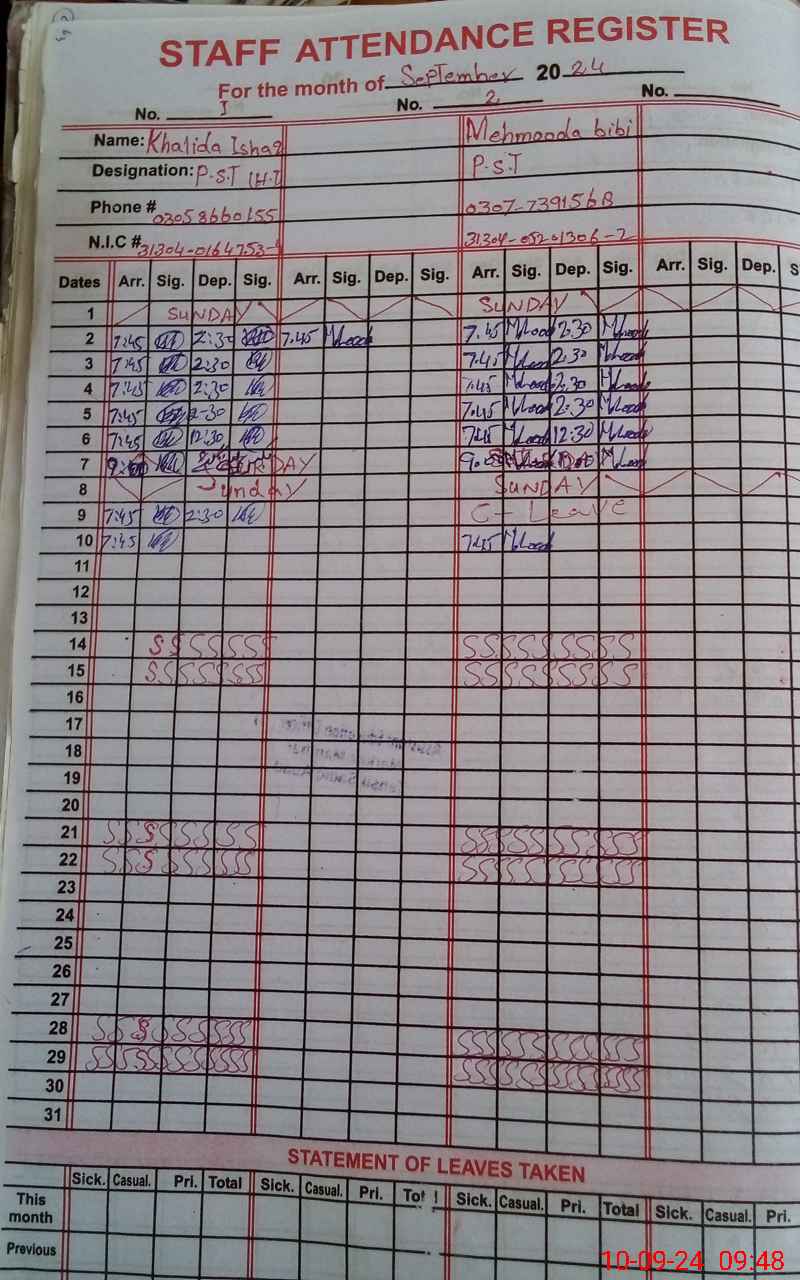 STAFF ATTENDANCE REGISTER
For the month of September 2024
No. 1 No. 2 No.
Name: Khalida Ishaq Mehmooda bibi
Designation: P.S.T (H.T P.S.T
Phone # 03058660155 0307-7391568
N.I.C # 31304-0164753- 31304-05201306-2
Dates Arr. Sig. Dep. Sig. Arr. Sig. Dep. Sig. Arr. Sig. Dep. Sig. Arr. Sig. Dep. S
1 SUNDAY SUNDAY
2 7:45 2:30 7.45 7.45 2:30
3 7:45 2:30 7.45 2:30
4 7:45 2:30 7.45 2.30
5 7:45 2:30 7.45 2:30
6 7:45 12:30 7.45 12:30
7
8 Sunday SUNDAY
9 7:45 2:30 C- Leave
10 7:45 7.45
11
12
13
14 SSSSSSS SSSSSSSSS
15 SSSSSSSS SSSSSSSSS
16
17
18
19
20
21 SSSSSSSS SSSSSSSSSS
22 SSSSSSSSS SSSSSSSSSSS
23
24
25
26
27
28 SSSSSSSSSS SSSSSSSSSSSS
29 SSSSSSSSSS SSSSSSSSSSSS
30
31
STATEMENT OF LEAVES TAKEN
Sick. Casual. Pri. Total Sick. Casual. Pri. Sick. Casual. Pri. Total Sick. Casual. Pri.
This month
Previous
10-09-24 09:48